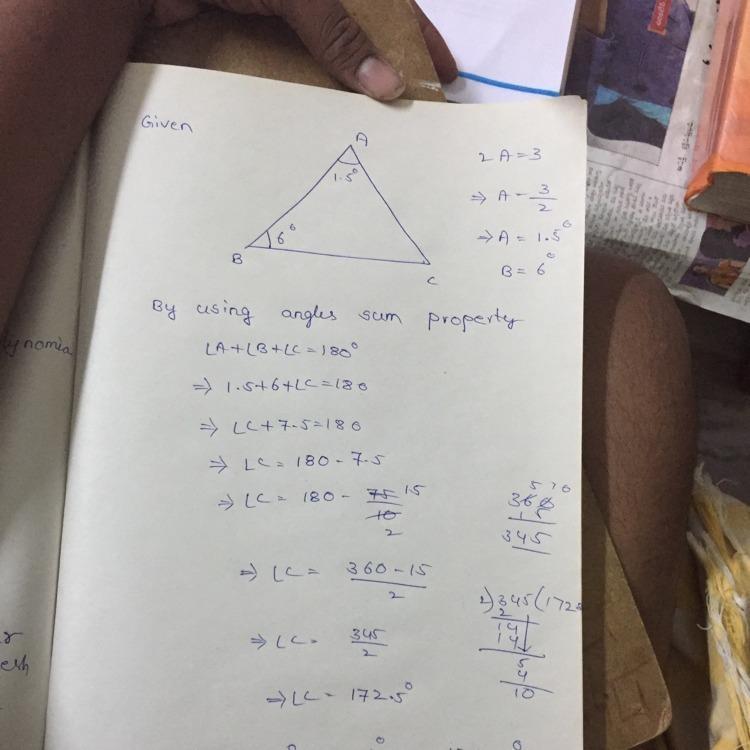 Given
A
1.5°
6°
B
C
2A=3
⇒ A = 3/2
⇒ A = 1.5°
B = 6°
By using angles sum property
∠A+∠B+∠C=180°
⇒ 1.5+6+∠C=180
⇒ ∠C+7.5=180
⇒ ∠C = 180 - 7.5
⇒ ∠C = 180 - 75/10 15/2
⇒ ∠C = 360-15/2
⇒ ∠C = 345/2
⇒ ∠C = 172.5°
5 10
360
15
345
2)345(172
2
14
14
5
4
10
ynomia
esh